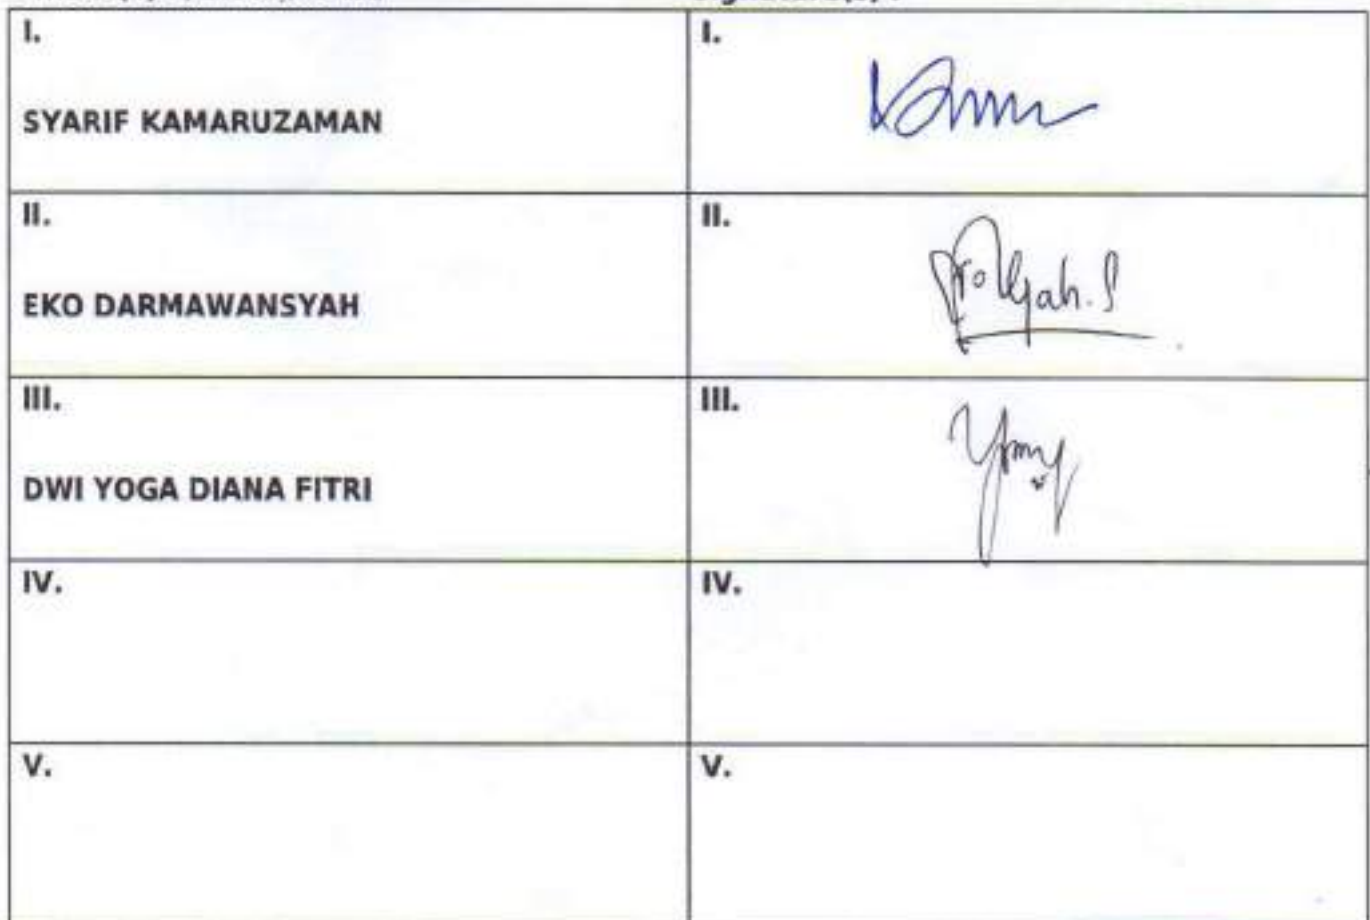 I.
I.
SYARIF KAMARUZAMAN
II.
II.
EKO DARMAWANSYAH
III.
III.
DWI YOGA DIANA FITRI
IV.
IV.
V.
V.